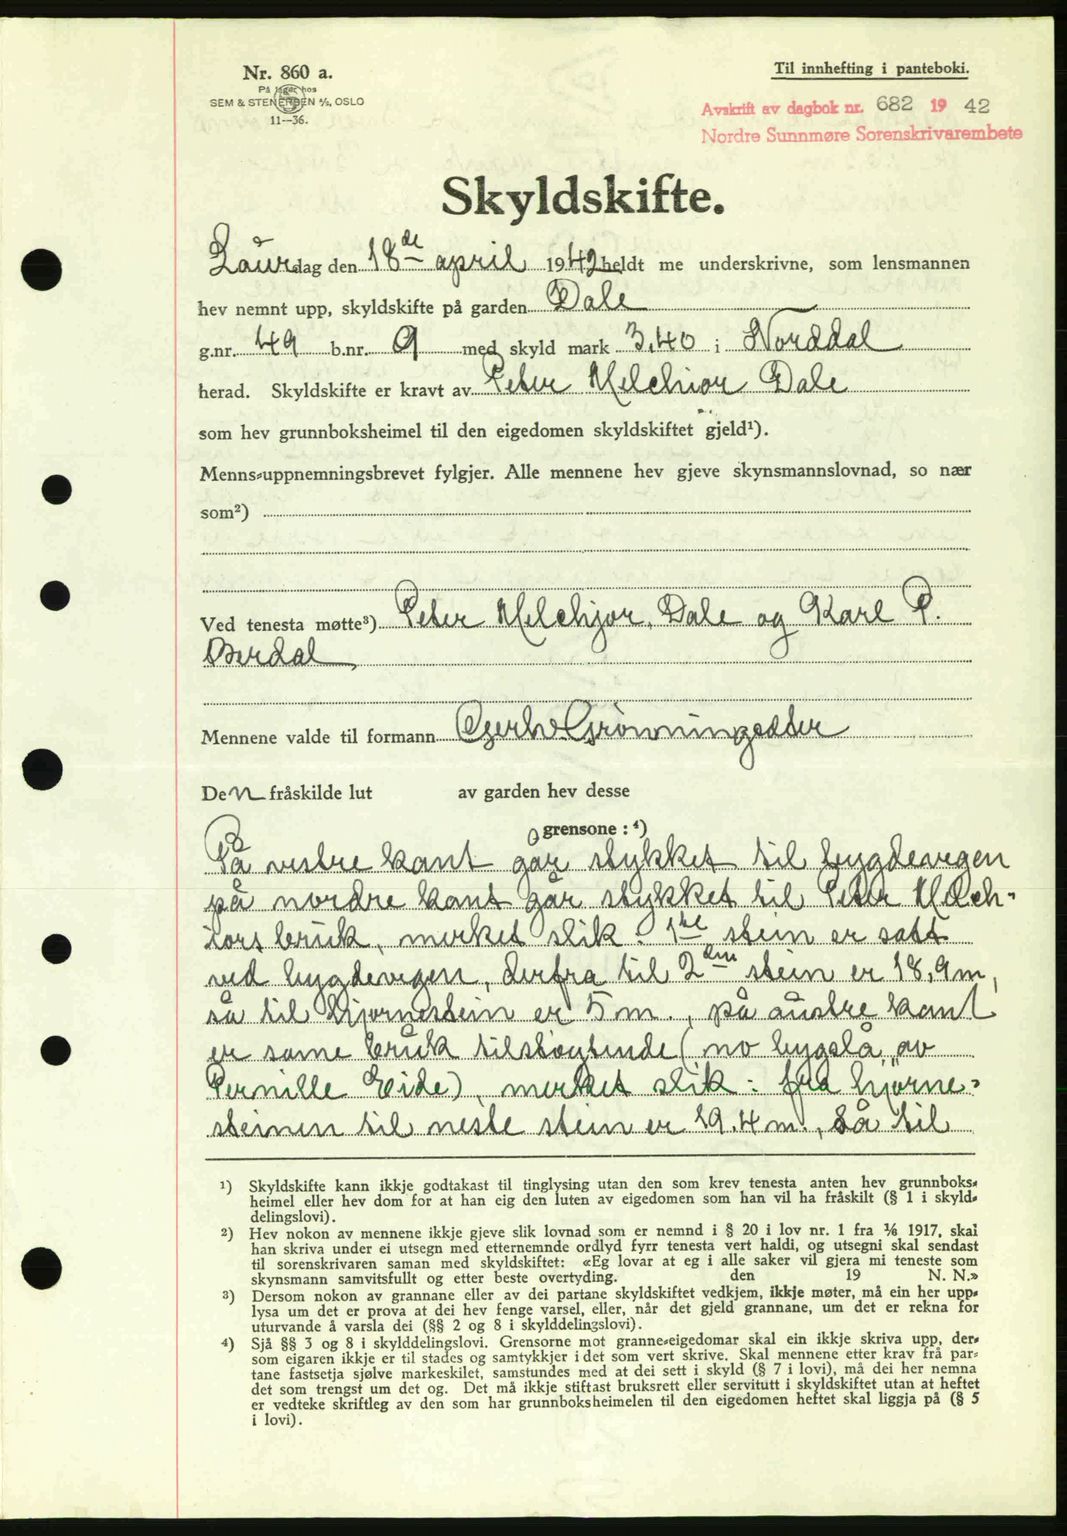 Nr. 860 a.
På lager hos
SEM & STENERSEN A/S, OSLO
11—36.
Til innhefting i panteboki.
Avskrift av dagbok nr. 682 19 42
Nordre Sunnmøre Sorenskrivarembete
Skyldskifte.
Laurdag den 18de april 1942 heldt me underskrivne, som lensmannen
hev nemnt upp, skyldskifte på garden Dale
g.nr. 49 b.nr. 9 med skyld mark 3,40 i Norddal
herad. Skyldskifte er kravt av Peter Melchior Dale
som hev grunnboksheimel til den eigedomen skyldskiftet gjeld¹).
Menns-uppnemningsbrevet fylgjer. Alle mennene hev gjeve skynsmannslovnad, so nær
som²)
Ved tenesta møtte³) Peter Melchjor Dale og Karl P.
Berdal
Mennene valde til formann Gerh. Grønningsæter
Den fråskilde lut av garden hev desse
grensone : ⁴)
På vestre kant går stykket til bygdevegen
på nordre kant går stykket til Peter Melch-
iors bruk, merket slik: 1ste stein er satt
ved bygdevegen, derfra til 2den stein er 18,9 m,
så til hjørnestein er 5 m., på austre kant
er same bruk tilstøytande (no bygslå av
Pernille Eide), merket slik: frå hjørne-
steinen til neste stein er 19.4 m., så til
¹) Skyldskifte kann ikkje godtakast til tinglysing utan den som krev tenesta anten hev grunnboks-
heimel eller hev dom for at han eig den luten av eigedomen som han vil ha fråskilt (§ 1 i skyld-
delingslovi).
²) Hev nokon av mennene ikkje gjeve slik lovnad som er nemnd i § 20 i lov nr. 1 fra 1/6 1917, skal
han skriva under ei utsegn med etternemnde ordlyd fyrr tenesta vert haldi, og utsegni skal sendast
til sorenskrivaren saman med skyldskiftet: «Eg lovar at eg i alle saker vil gjera mi teneste som
skynsmann samvitsfullt og etter beste overtyding. den 19 N. N.»
³) Dersom nokon av grannane eller av dei partane skyldskiftet vedkjem, ikkje møter, må ein her upp-
lysa um det er prova at dei hev fenge varsel, eller, når det gjeld grannane, um det er rekna for
uturvande å varsla dei (§§ 2 og 8 i skylddelingslovi).
⁴) Sjå §§ 3 og 8 i skylddelingslovi. Grensorne mot granne-eigedomar skal ein ikkje skriva upp, der-
som eigaren ikkje er til stades og samtykkjer i det som vert skrive. Skal mennene etter krav frå par-
tane fastsetja sjølve markeskilet, samstundes med at dei sett i skyld (§ 7 i lovi), må dei her nemna
det som trengst um det og. Det må ikkje stiftast bruksrett eller servitutt i skyldskiftet utan at heftet
er vedteke skriftleg av den som har grunnboksheimelen til den eigedomen heftet skal liggja på (§ 5
i lovi).